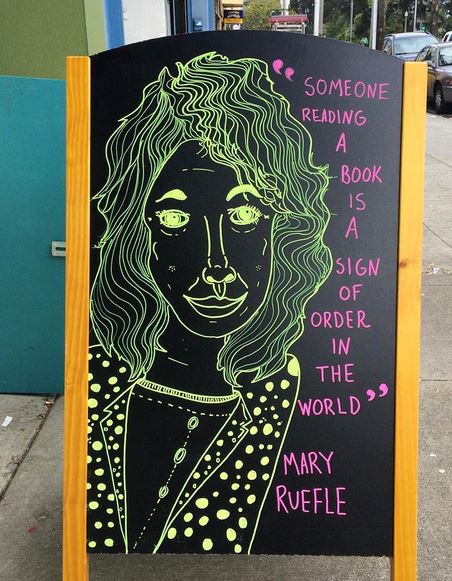 “SOMEONE
READING
A
BOOK
IS
A
SIGN
OF
ORDER
IN
THE
WORLD”
MARY
RUEFLE